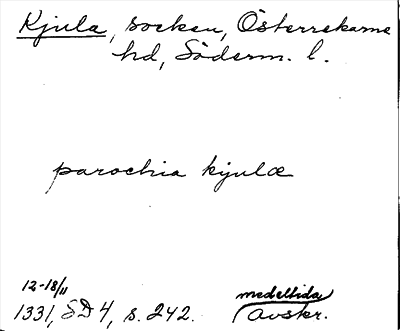 Kjula, socken, Österrekarne
hd, Söderm. l.
parochia kjulæ
12-18/11 medeltida
1331, SD 4, s. 242. Avskr.